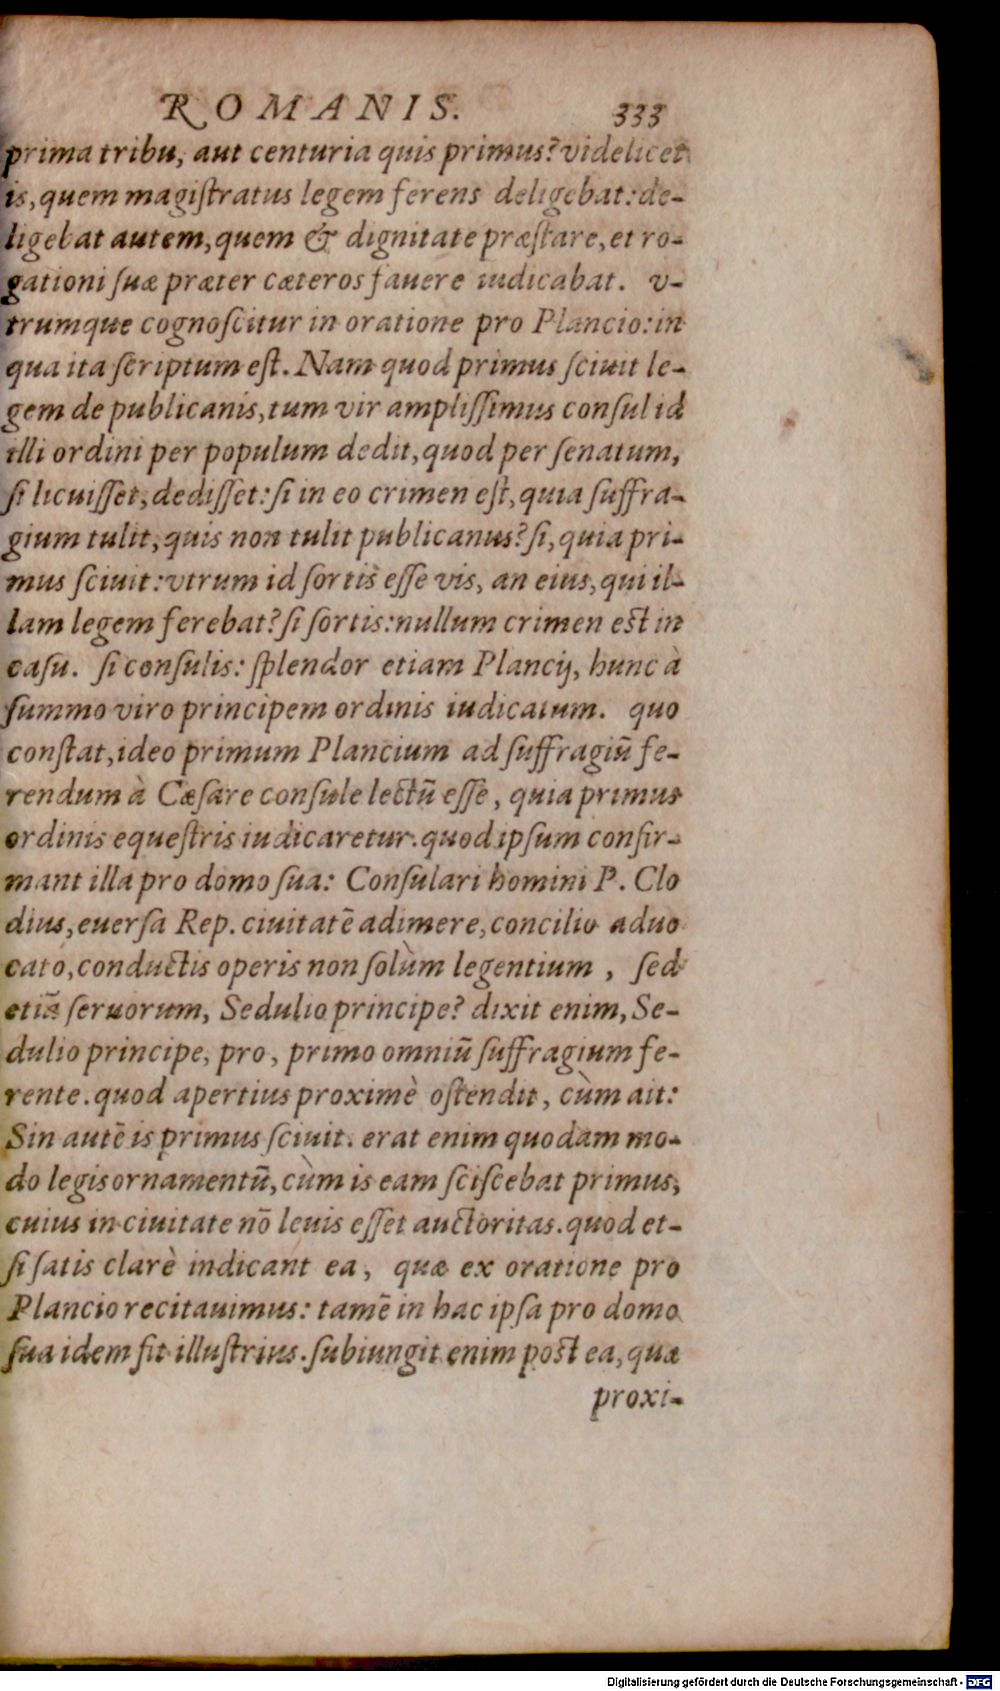 ROMANIS. 333
prima tribu, aut centuria quis primus? videlicet
is, quem magiſtratus legem ferens deligebat: de-
ligebat autem, quem & dignitate præſtare, et ro-
gationi ſuæ præter cæteros fauere iudicabat. v-
trumque cognoſcitur in oratione pro Plancio: in
qua ita ſcriptum eſt. Nam quod primus ſciuit le-
gem de publicanis, tum vir ampliſſimus conſul id
illi ordini per populum dedit, quod per ſenatum,
ſi licuiſſet, dediſſet: ſi in eo crimen eſt, quia ſuffra-
gium tulit, quis non tulit publicanus? ſi, quia pri-
mus ſciuit: vtrum id ſortis eſſe vis, an eius, qui il-
lam legem ferebat? ſi ſortis: nullum crimen est in
caſu. ſi conſulis: ſplendor etiam Plancij, hunc à
ſummo viro principem ordinis iudicatum. quo
conſtat, ideo primum Plancium ad ſuffragiũ fe-
rendum à Cæſare conſule lectũ eſſe, quia primus
ordinis equeſtris iudicaretur. quod ipſum confir-
mant illa pro domo ſua: Conſulari homini P. Clo
dius, euerſa Rep. ciuitatē adimere, concilio aduo
cato, conductis operis non ſolùm legentium, ſed
etiã ſeruorum, Sedulio principe? dixit enim, Se-
dulio principe, pro, primo omniũ ſuffragium fe-
rente. quod apertius proximè oſtendit, cùm ait:
Sin autē is primus ſciuit. erat enim quodam mo-
do legis ornamentũ, cùm is eam ſciſcebat primus,
cuius in ciuitate nō leuis eſſet auctoritas. quod et-
ſi ſatis clarè indicant ea, quæ ex oratione pro
Plancio recitauimus: tamē in hac ipſa pro domo
ſua idem fit illuſtrius. ſubiungit enim post ea, quæ
proxi-
Digitalisierung gefördert durch die Deutsche Forschungsgemeinschaft - DFG